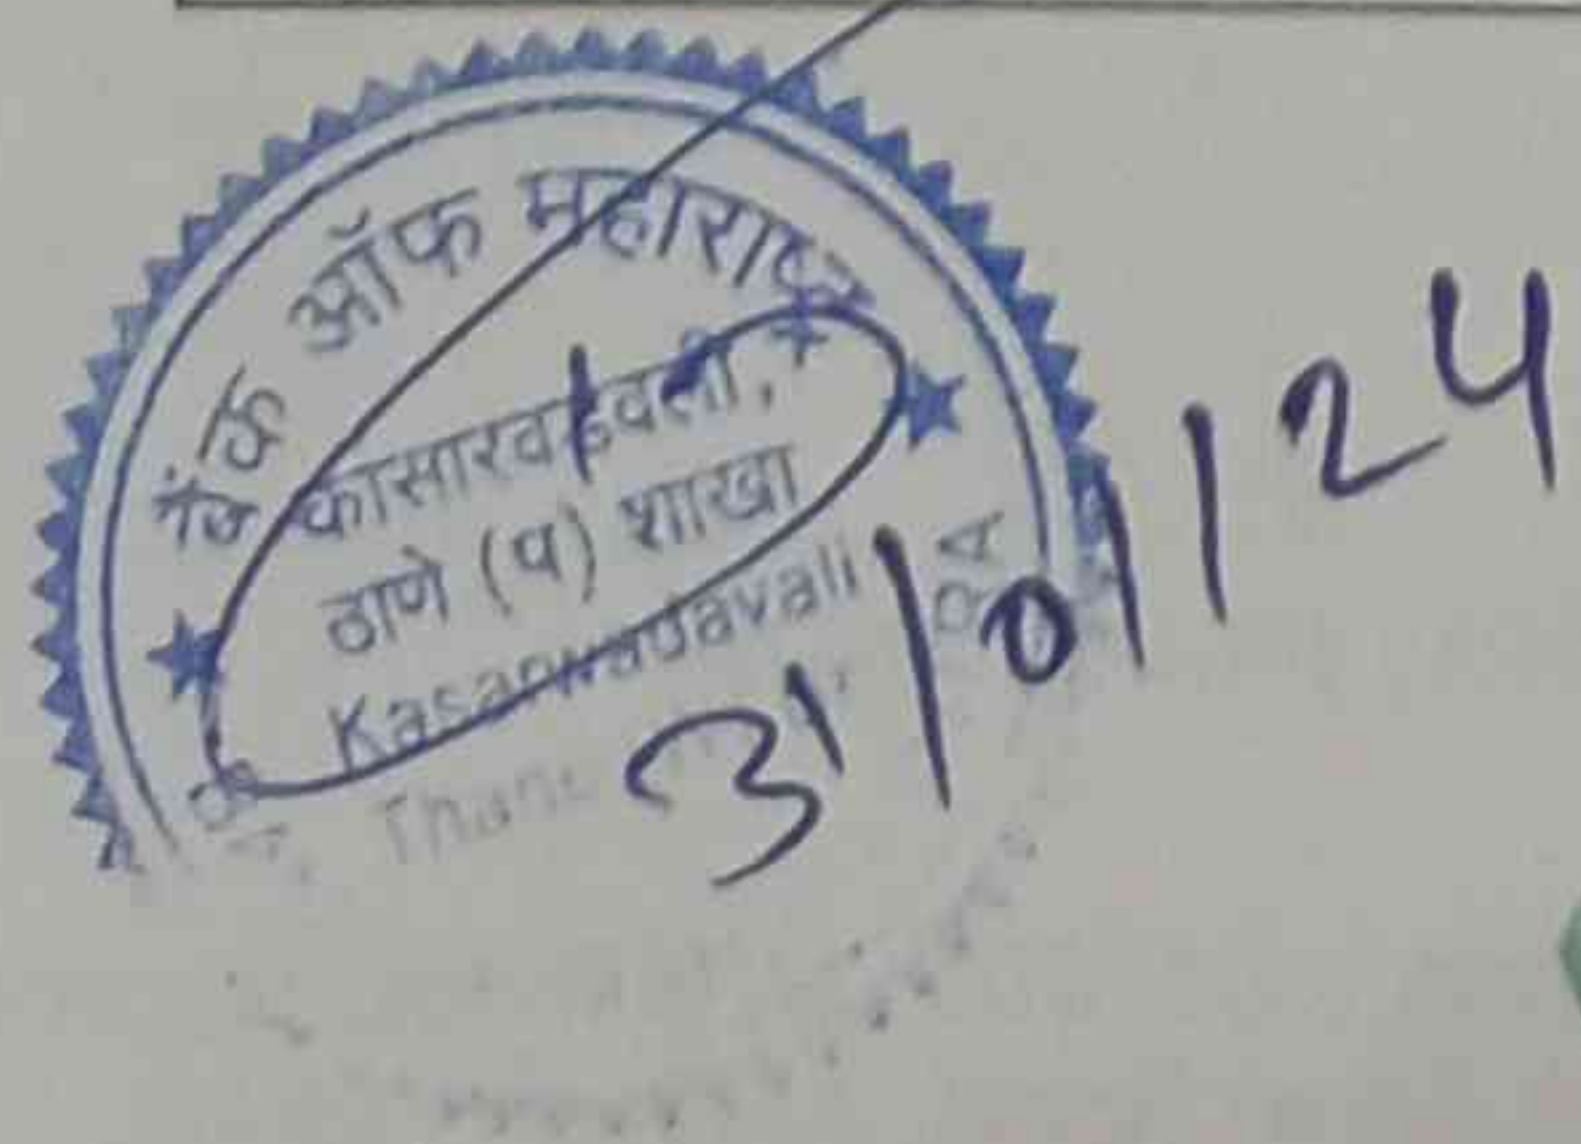 बैंक ऑफ महाराष्ट्र
कासारवडवली,
ठाणे (प) शाखा
Kasarwadavali
Thane
31/01/24